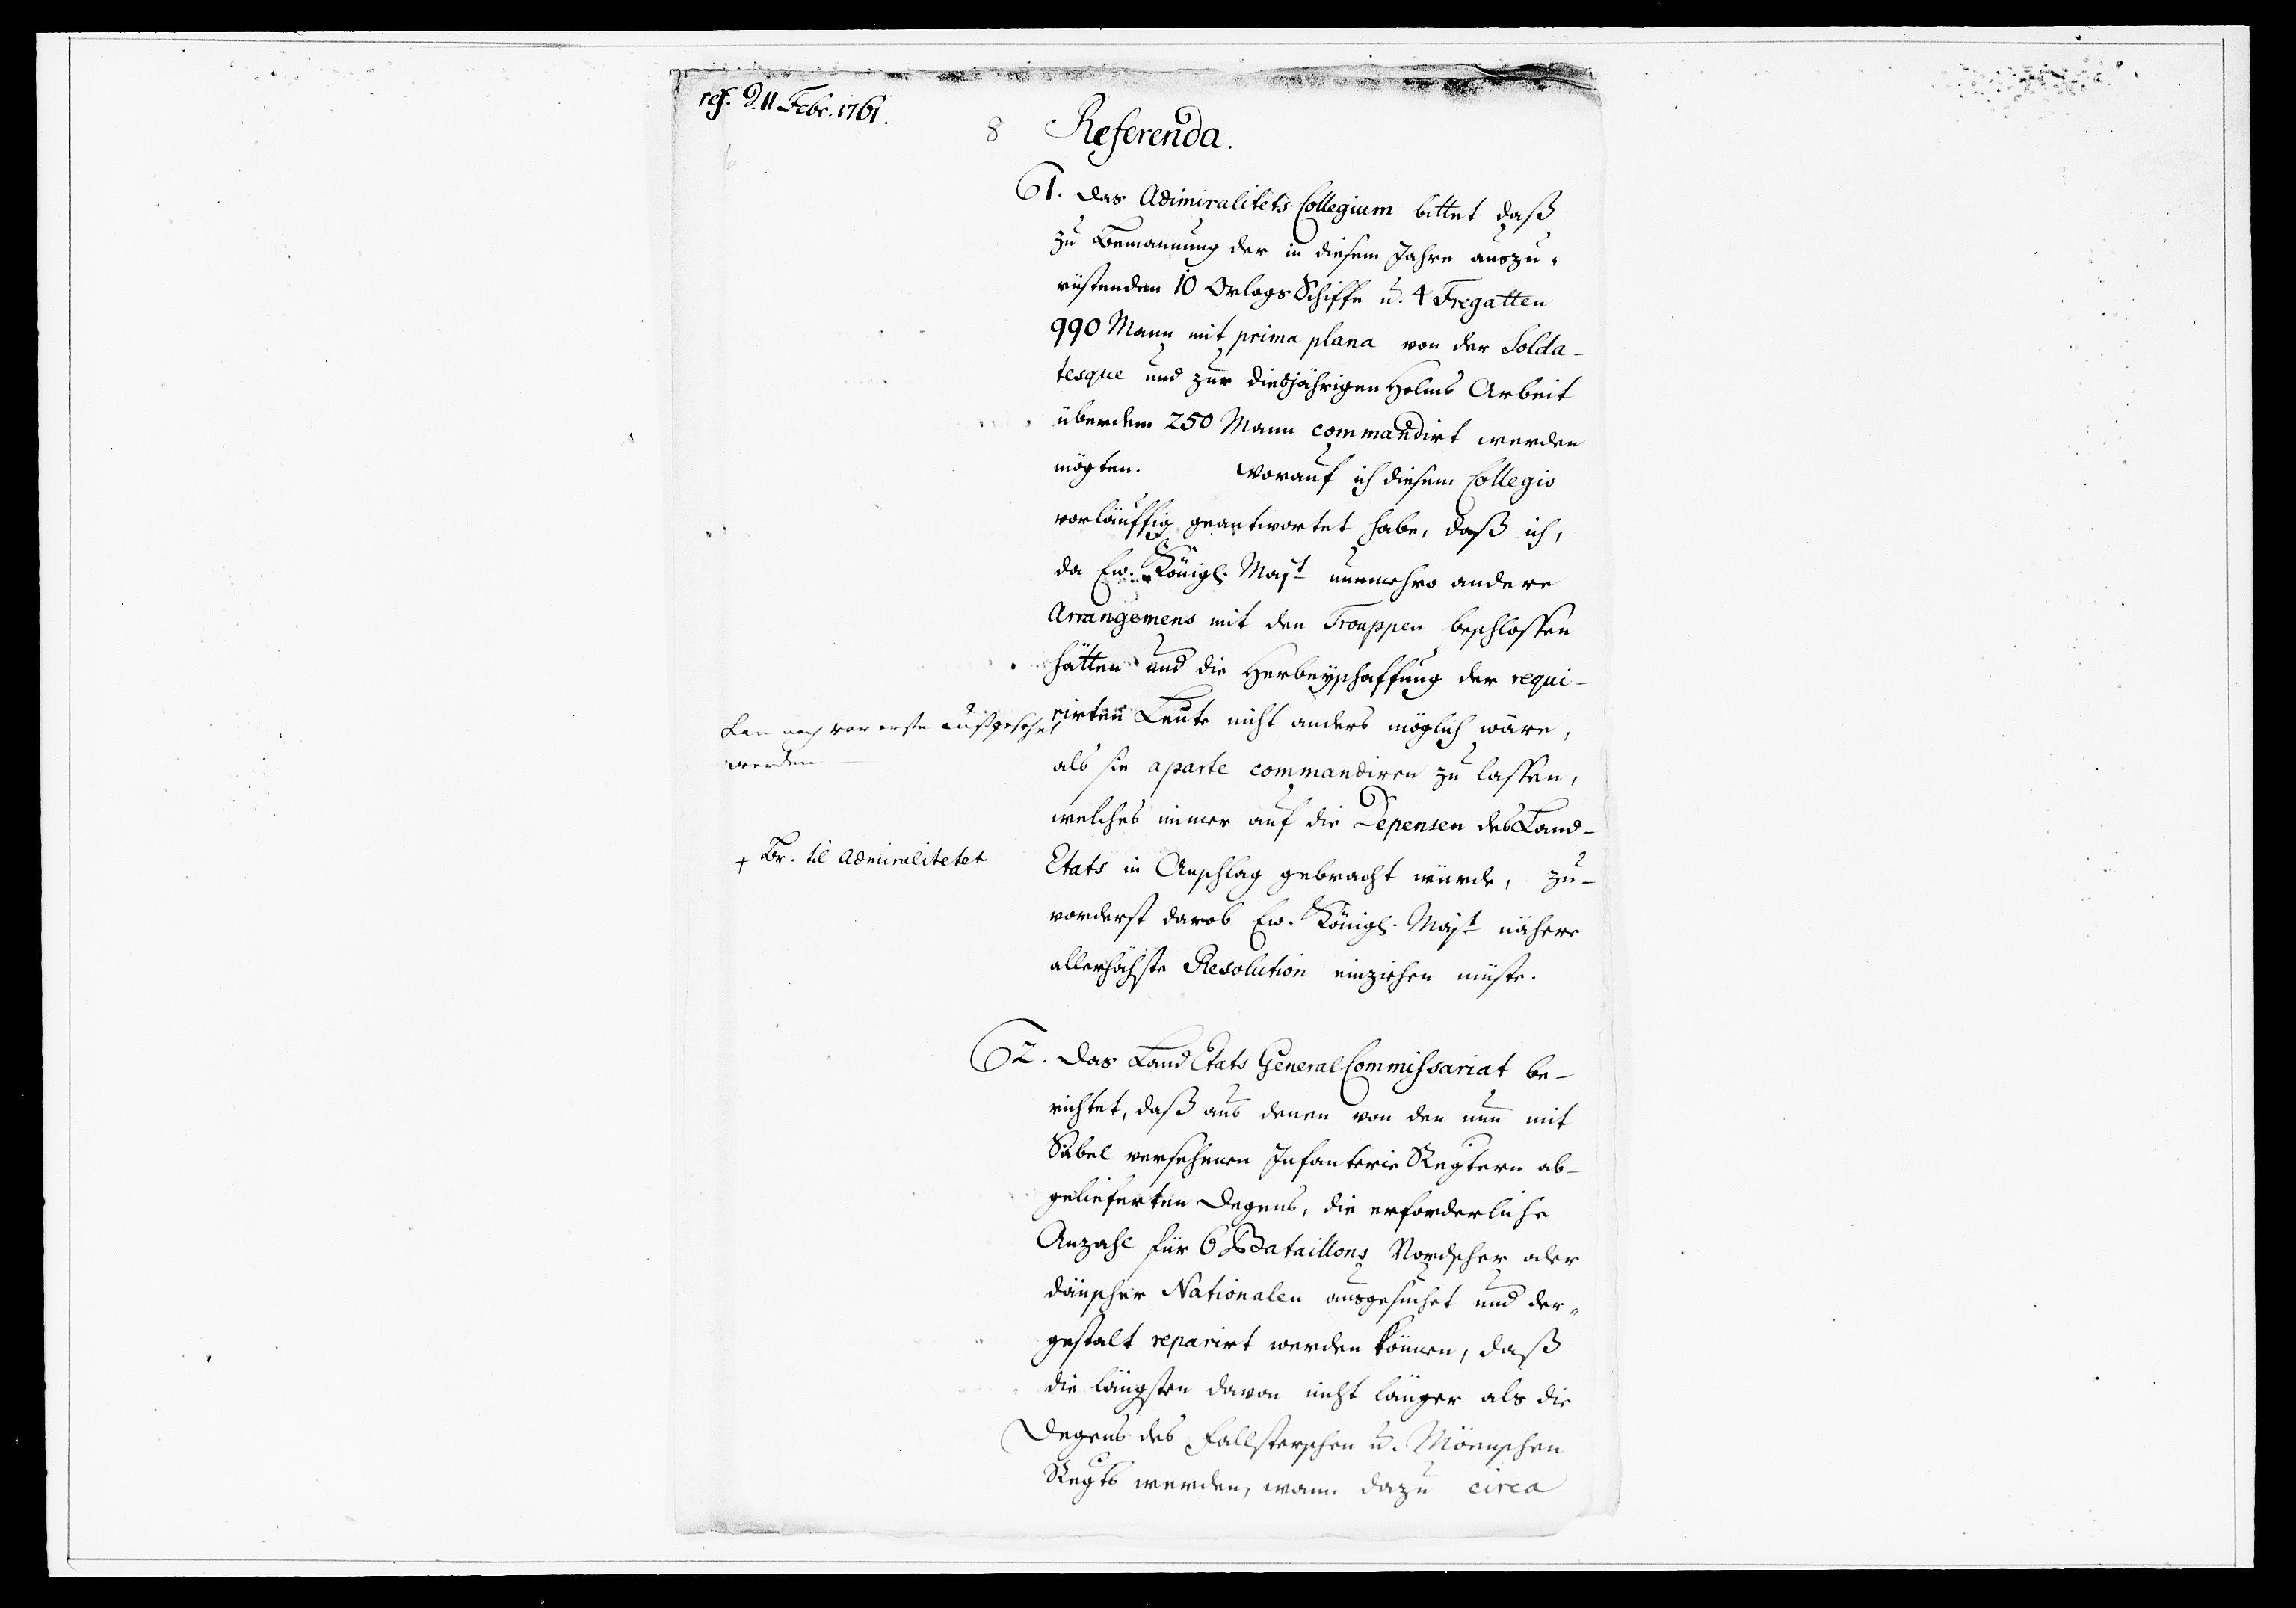 ref. d 11 Febr. 1761.
8 Referenda.
6
1. Das Adimiralitets Collegium bittet daß
zu Bemannung der in diesem Jahre auszu-
rüstenden 10 Orlogs Schiffe u. 4 Fregatten
990 Mann mit prima plana von der Solda-
tesque und zur diesjährigen Holms Arbeit
überdem 250 Mann commandirt werden
mögten. Worauf ich diesem Collegio
vorläuffig geantwortet habe, daß ich,
da Ew. Königl. Majt nunmehro andere
Arrangemens mit den Trouppen beschlossen
hätten und die Herbeyschaffung der requi-
rirten Leute nicht anders möglich wäre,
als sie aparte commandiren zu lassen,
welches immer auf die Depensen des Land-
Etats in Anschlag gebracht würde, zu-
vorderst darob Ew. Königl. Majt nähere
allerhöchste Resolution einziehen müste.
Kan noch vor erste
werden
+ Br. til Admiralitetet
2. Das Land Etats General Commissariat be-
richtet, daß aus denen von den nun mit
Säbel versehenen Infanterie Regtern ab-
gelieferten Degens, die erforderliche
Anzahl für 6 Bataillons Nordscher oder
dänscher Nationalen ausgesuchet und der-
gestalt reparirt werden können, daß
die längsten davon nicht länger als die
Degens des Fallsterschen u. Möenschen
Regts werden, wann dazu circa